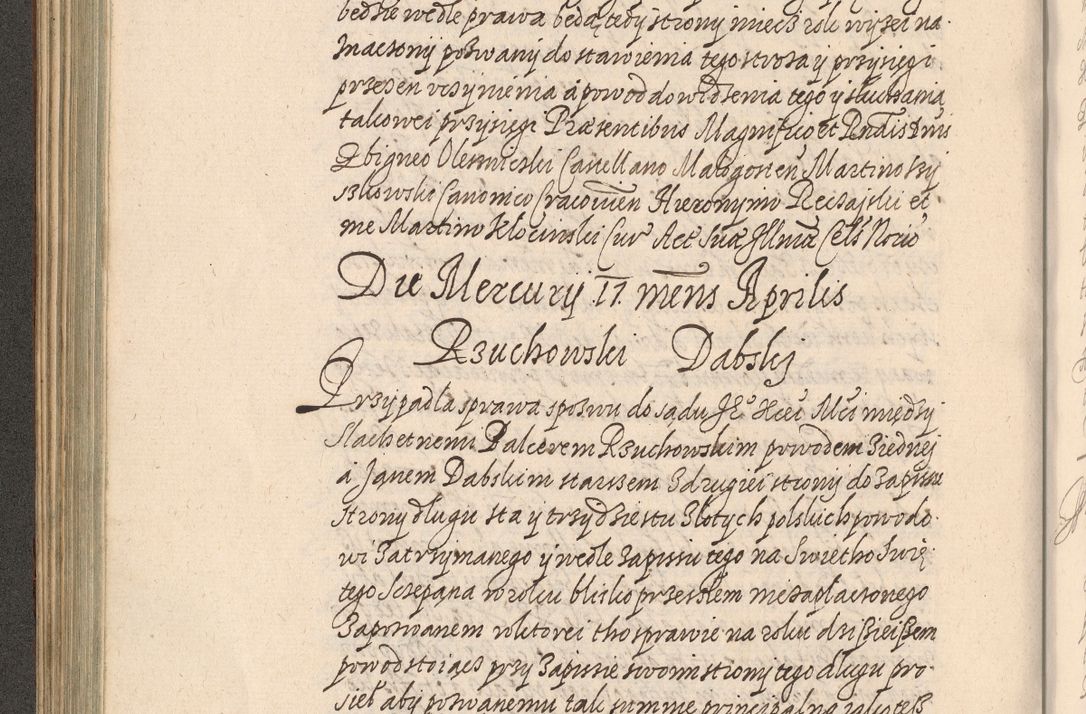 bedzie wedle prawa bedą, tedy strony miecz rok wyzei na
znaczony pozwany do stawienia tego stroza y przysięgi
przezen uczynienia á powod do widzenia tego y słuchania
takowei przysięgi Præsentibus Magnifico et Rndis Dnis
Zbigneo Oleśnicski Castellano Małogosten Martino Szy
szkowski Canonico Cracovien Hieronymo Reczajski et
me Martino Kłocinski Cur Act Suæ Illmæ Cels Norio
Die Mercury 11 mens Aprilis
Rzuchowski Dabsky
Przypadła sprawa spozwu do sądu Je Xcei Mci między
Slachetnemi Balcerem Rzuchowskim powodem ziednej
á Janem Dabskim starszem zdrugiei strony do zapisu
strony długu sta y trzydziestu złotych polskich powodo
wi zatrzymanego y wedle zapisu tego na Swietho Swię
tego Sczepąna w roku blisko przeszłem niezapłaconego
zapozwanem w ktorei tho sprawie na roku dzisieiszem
powod stoiącz przy zapisie swoim strony tego długu pro
sieł aby pozwanemu tak summe principalną iako tesz